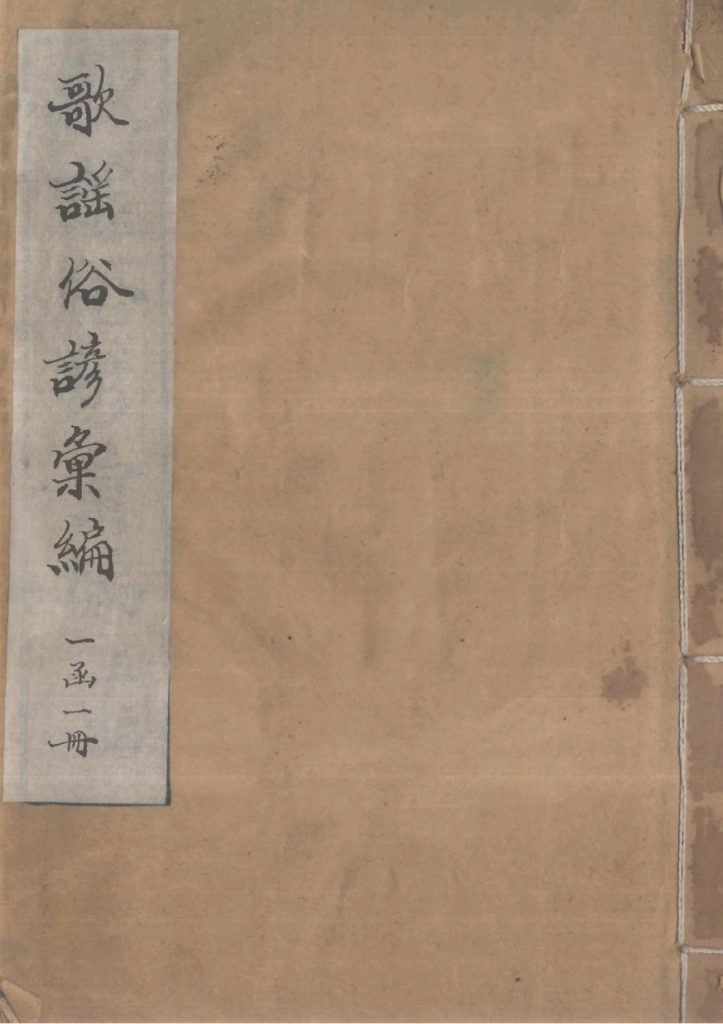 歌謡俗諺彙編 一函一冊